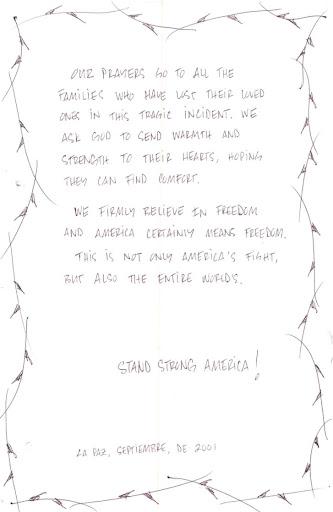 OUR PRAYERS GO TO ALL THE
FAMILIES WHO HAVE LOST THEIR LOVED
ONES IN THIS TRAGIC INCIDENT. WE
ASK GOD TO SEND WARMTH AND
STRENGTH TO THEIR HEARTS, HOPING
THEY CAN FIND COMFORT.
WE FIRMLY BELIEVE IN FREEDOM
AND AMERICA CERTAINLY MEANS FREEDOM.
THIS IS NOT ONLY AMERICA'S FIGHT,
BUT ALSO THE ENTIRE WORLD'S.
STAND STRONG AMERICA!
LA PAZ, SEPTIEMBRE, DE 2001